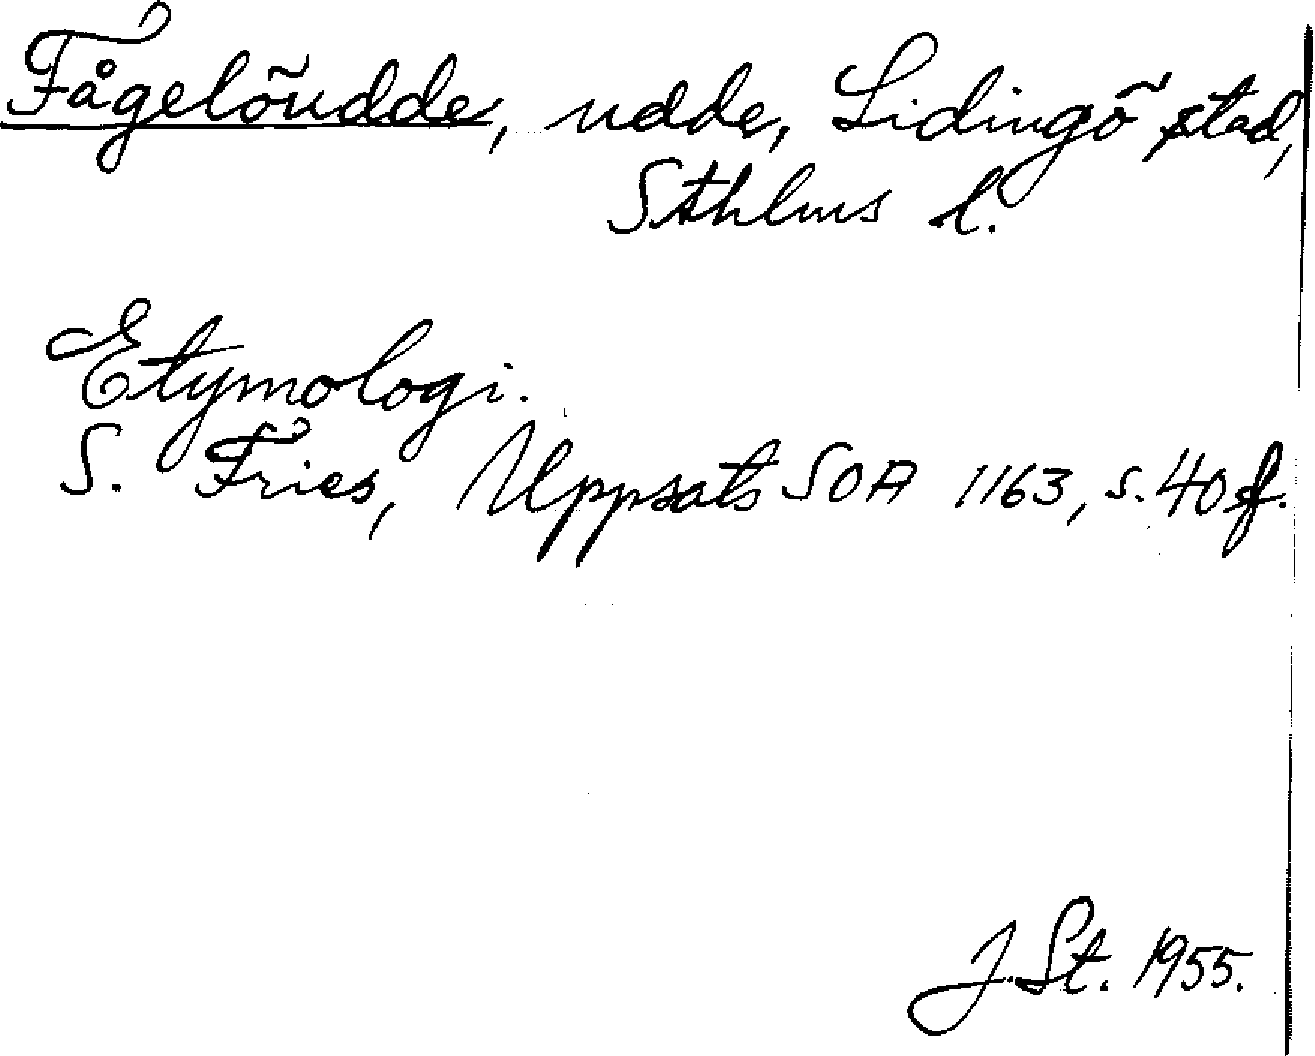 Fågelöudde, udde, Lidingö stad,
Sthlms l.
Etymologi.
S. Fries, Uppsats SOA 1163, s. 40 f.
J. St. 1955.